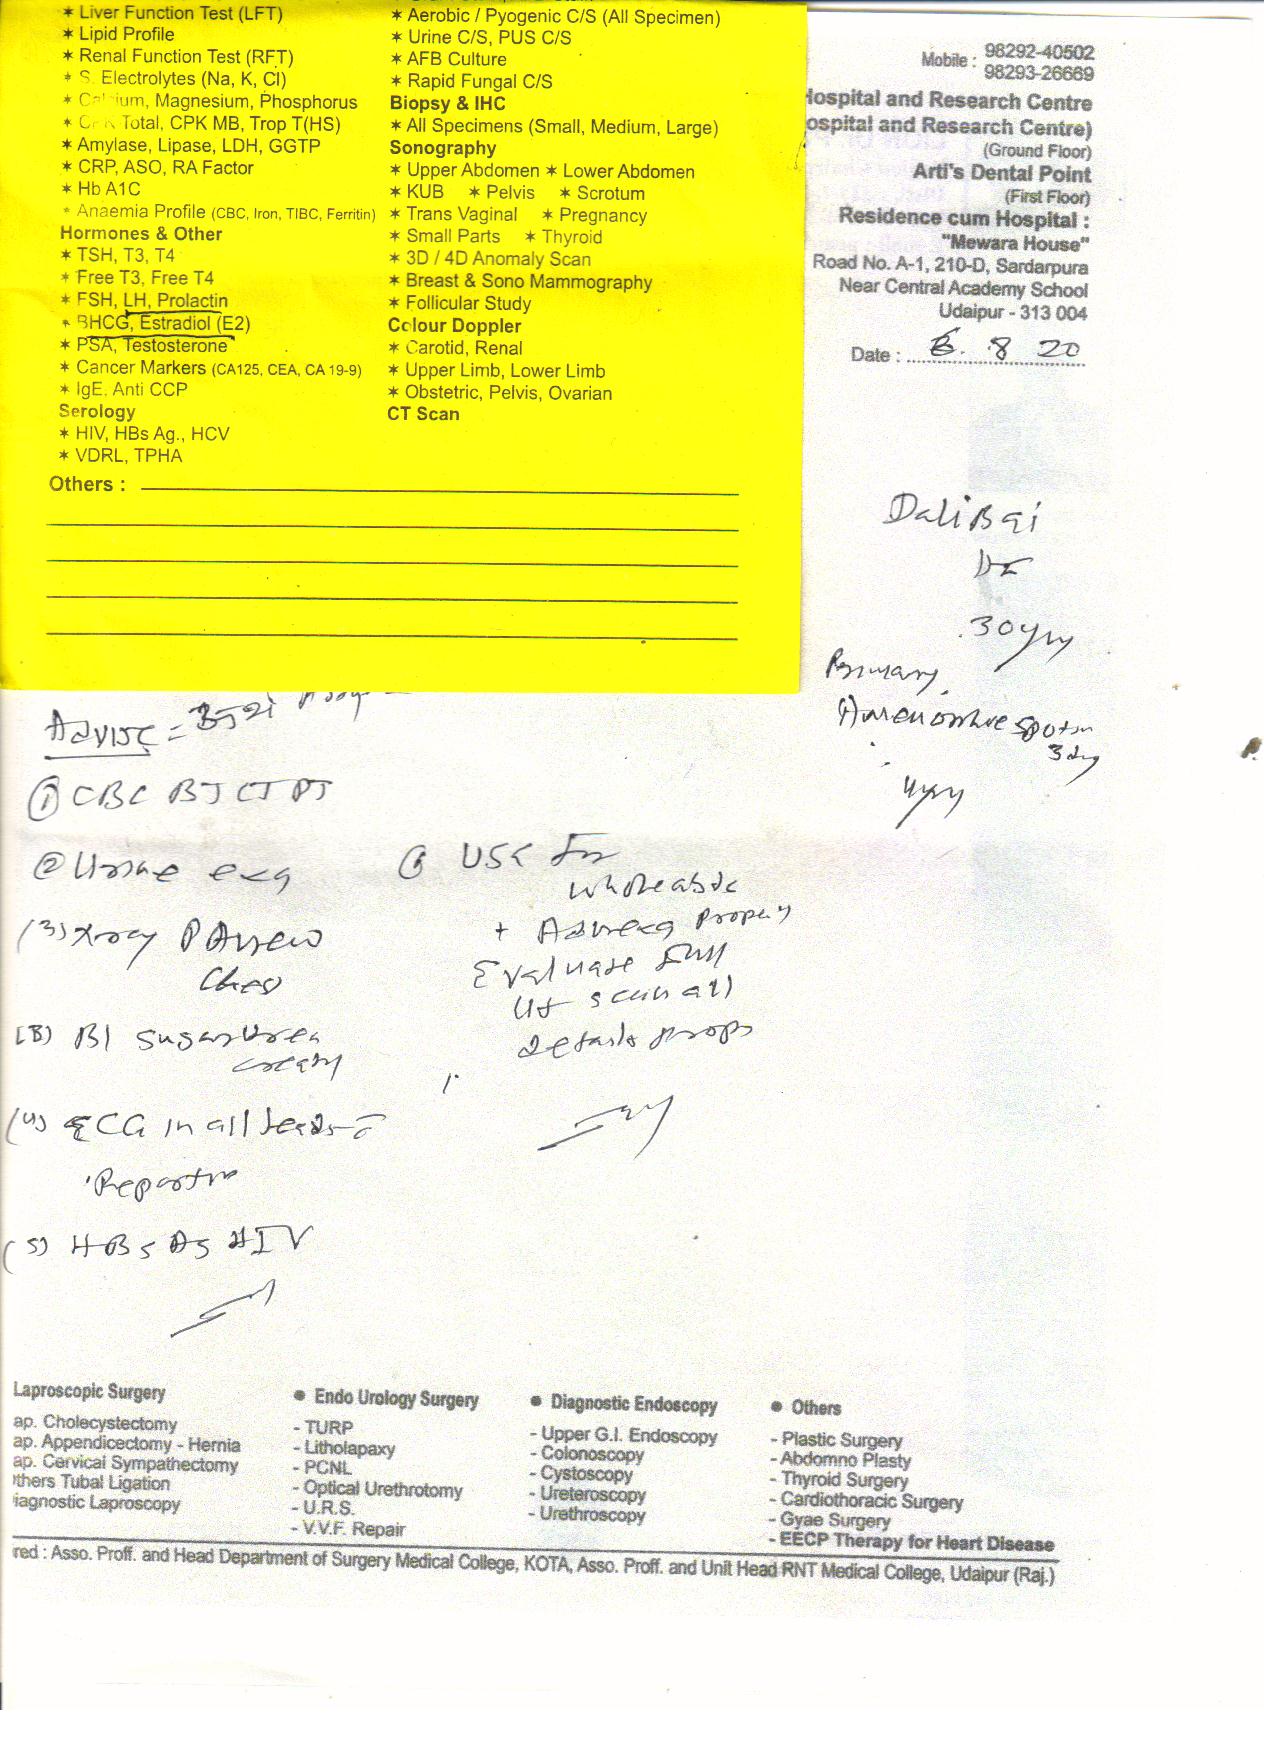 * Liver Function Test (LFT)
* Lipid Profile
* Renal Function Test (RFT)
* S. Electrolytes (Na, K, Cl)
* Calcium, Magnesium, Phosphorus
* CPK Total, CPK MB, Trop T(HS)
* Amylase, Lipase, LDH, GGTP
* CRP, ASO, RA Factor
* Hb A1C
* Anaemia Profile (CBC, Iron, TIBC, Ferritin)
Hormones & Other
* TSH, T3, T4
* Free T3, Free T4
* FSH, LH, Prolactin
* BHCG, Estradiol (E2)
* PSA, Testosterone
* Cancer Markers (CA125, CEA, CA 19-9)
* IgE, Anti CCP
Serology
* HIV, HBs Ag., HCV
* VDRL, TPHA
* Aerobic / Pyogenic C/S (All Specimen)
* Urine C/S, PUS C/S
* AFB Culture
* Rapid Fungal C/S
Biopsy & IHC
* All Specimens (Small, Medium, Large)
Sonography
* Upper Abdomen * Lower Abdomen
* KUB * Pelvis * Scrotum
* Trans Vaginal * Pregnancy
* Small Parts * Thyroid
* 3D / 4D Anomaly Scan
* Breast & Sono Mammography
* Follicular Study
Colour Doppler
* Carotid, Renal
* Upper Limb, Lower Limb
* Obstetric, Pelvis, Ovarian
CT Scan
Others :
Mobile : 98292-40502
98293-26669
Hospital and Research Centre
ospital and Research Centre)
(Ground Floor)
Arti's Dental Point
(First Floor)
Residence cum Hospital :
"Mewara House"
Road No. A-1, 210-D, Sardarpura
Near Central Academy School
Udaipur - 313 004
Date : 6. 8 20
Dali Bai
30
Primary
3
Advise =
(1) CBC BT CT PT
(2) Urine exa
(3) Xray PA view
Ches
(B) Bl Sugar Urea
(4) ECG in all leads
Reporting
(5) HBs Ag HIV
(6) USG for
whole abdo
+ Adnexa properly
Evaluate full
Ut scan all
details props
Laproscopic Surgery
ap. Cholecystectomy
ap. Appendicectomy - Hernia
ap. Cervical Sympathectomy
thers Tubal Ligation
iagnostic Laproscopy
● Endo Urology Surgery
- TURP
- Litholapaxy
- PCNL
- Optical Urethrotomy
- U.R.S.
- V.V.F. Repair
● Diagnostic Endoscopy
- Upper G.I. Endoscopy
- Colonoscopy
- Cystoscopy
- Ureteroscopy
- Urethroscopy
● Others
- Plastic Surgery
- Abdomno Plasty
- Thyroid Surgery
- Cardiothoracic Surgery
- Gyae Surgery
- EECP Therapy for Heart Disease
red : Asso. Proff. and Head Department of Surgery Medical College, KOTA, Asso. Proff. and Unit Head RNT Medical College, Udaipur (Raj.)